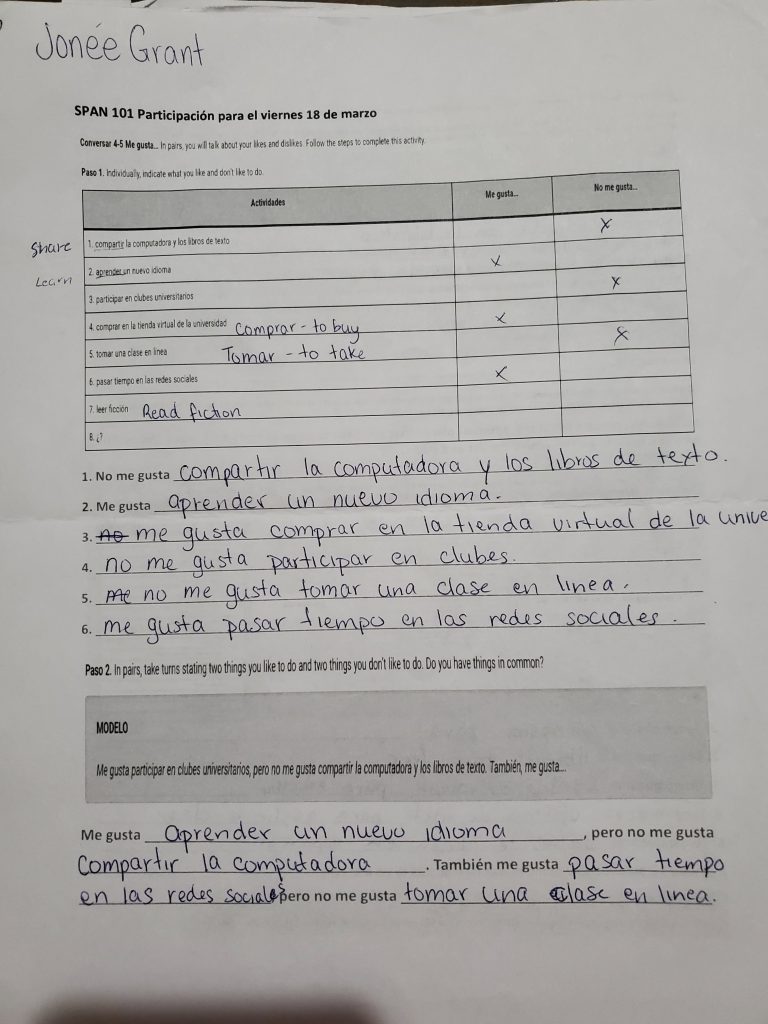 Jonée Grant
SPAN 101 Participación para el viernes 18 de marzo
Conversar 4-5 Me gusta... In pairs, you will talk about your likes and dislikes. Follow the steps to complete this activity.
Paso 1. Individually, indicate what you like and don't like to do.
Actividades Me gusta... No me gusta...
Share 1. compartir la computadora y los libros de texto X
Learn 2. aprender un nuevo idioma X
3. participar en clubes universitarios X
4. comprar en la tienda virtual de la universidad Comprar - to buy X
5. tomar una clase en línea Tomar - to take X
6. pasar tiempo en las redes sociales X
7. leer ficción Read fiction
8. ¿?
1. No me gusta compartir la computadora y los libros de texto.
2. Me gusta aprender un nuevo idioma.
3. no me gusta comprar en la tienda virtual de la unive
4. no me gusta participar en clubes.
5. Me no me gusta tomar una clase en linea.
6. me gusta pasar tiempo en las redes sociales.
Paso 2. In pairs, take turns stating two things you like to do and two things you don't like to do. Do you have things in common?
MODELO
Me gusta participar en clubes universitarios, pero no me gusta compartir la computadora y los libros de texto. También, me gusta...
Me gusta aprender un nuevo idioma, pero no me gusta
Compartir la computadora. También me gusta pasar tiempo
en las redes sociales pero no me gusta tomar una clase en linea.